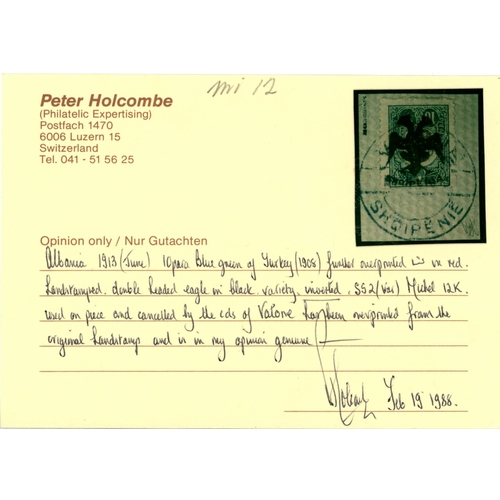 mi 12
Peter Holcombe
(Philatelic Expertising)
Postfach 1470
6006 Luzern 15
Switzerland
Tel. 041 - 51 56 25
SHQIPËNIE
Opinion only / Nur Gutachten
Albania 1913 (June) 10para Blue green of Turkey (1908) further overprinted in red.
handstamped. double headed eagle in black variety, inverted. SG2(var) Michel 12K.
used on piece and cancelled by the cds of Valone has been overprinted from the
original handstamp and is in my opinion genuine
Holcombe Feb 19 1988.